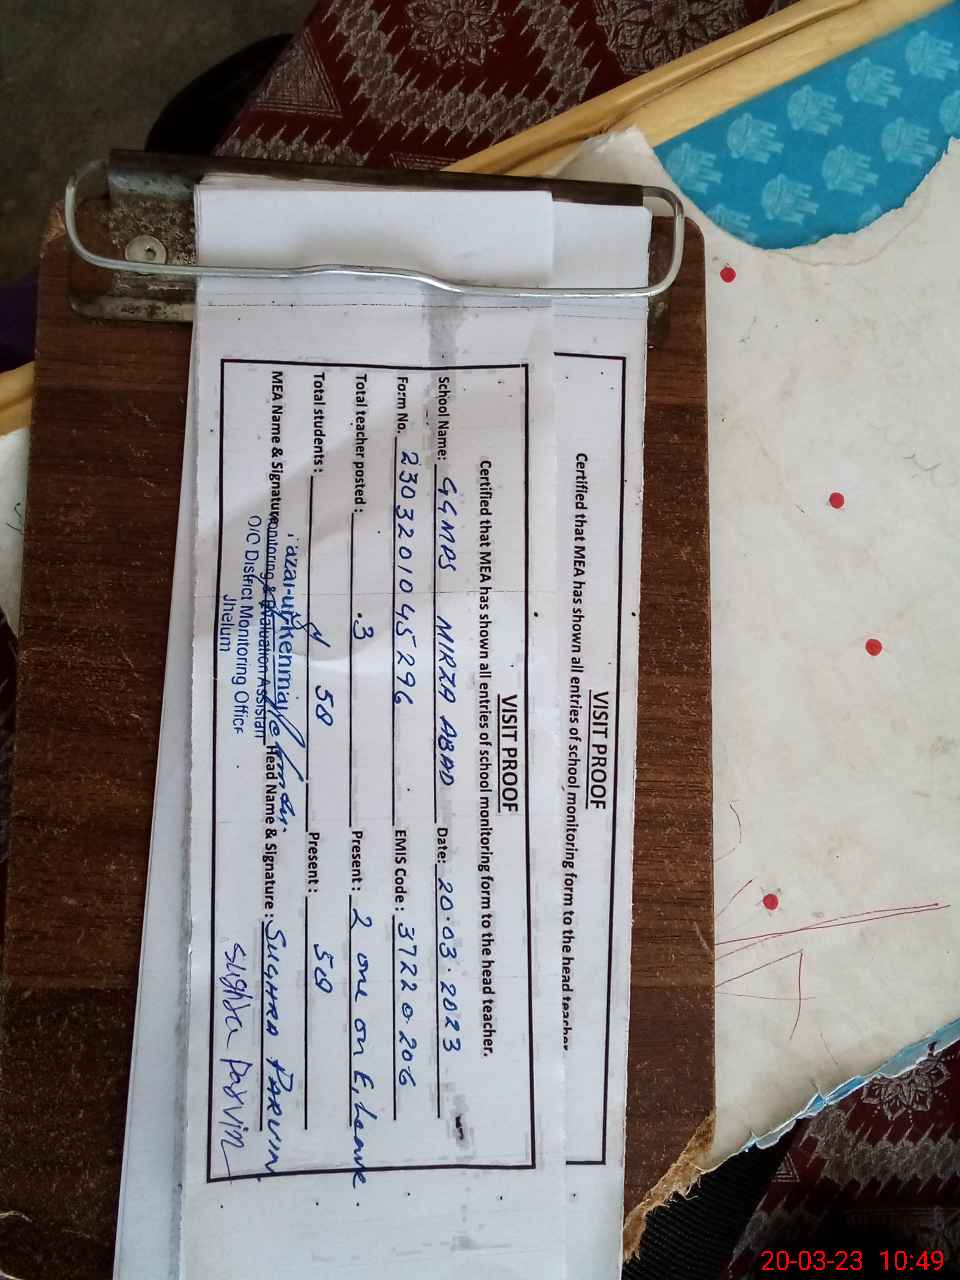 VISIT PROOF
Certified that MEA has shown all entries of school monitoring form to the head teacher.
VISIT PROOF
Certified that MEA has shown all entries of school monitoring form to the head teacher.
School Name: GGMPS MIRZA ABAD Date: 20.03.2023
Form No. 230320104 5296 EMIS Code: 37220206
Total teacher posted: .3 Present: 2 one on E, Leave
Total students: 58 Present: 58
MEA Name & Signature Head Name & Signature: SUGHRA PARVIN
Monitoring & Evaluation Assistan Sughra Parvin
O/C District Monitoring Office
Jhelum
20-03-23 10:49